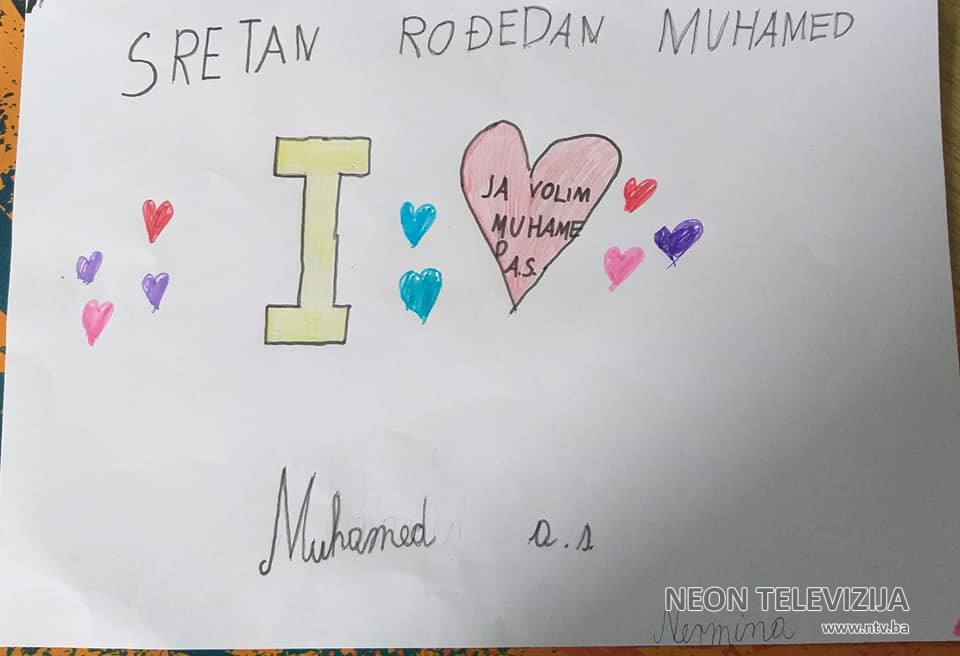 SRETAN ROĐEDAN MUHAMED
I
JA VOLIM
MUHAME
D A.S.
Muhamed a.s.
NEON TELEVIZIJA
Nermina
www.ntv.ba